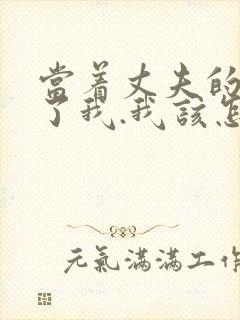 當着丈夫的
了我.我該怎
元氣滿滿工作